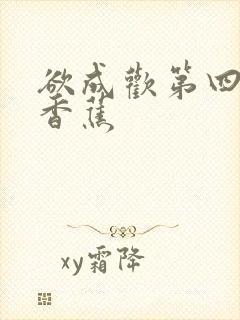 欲成歡第四
香蕉
xy霜降